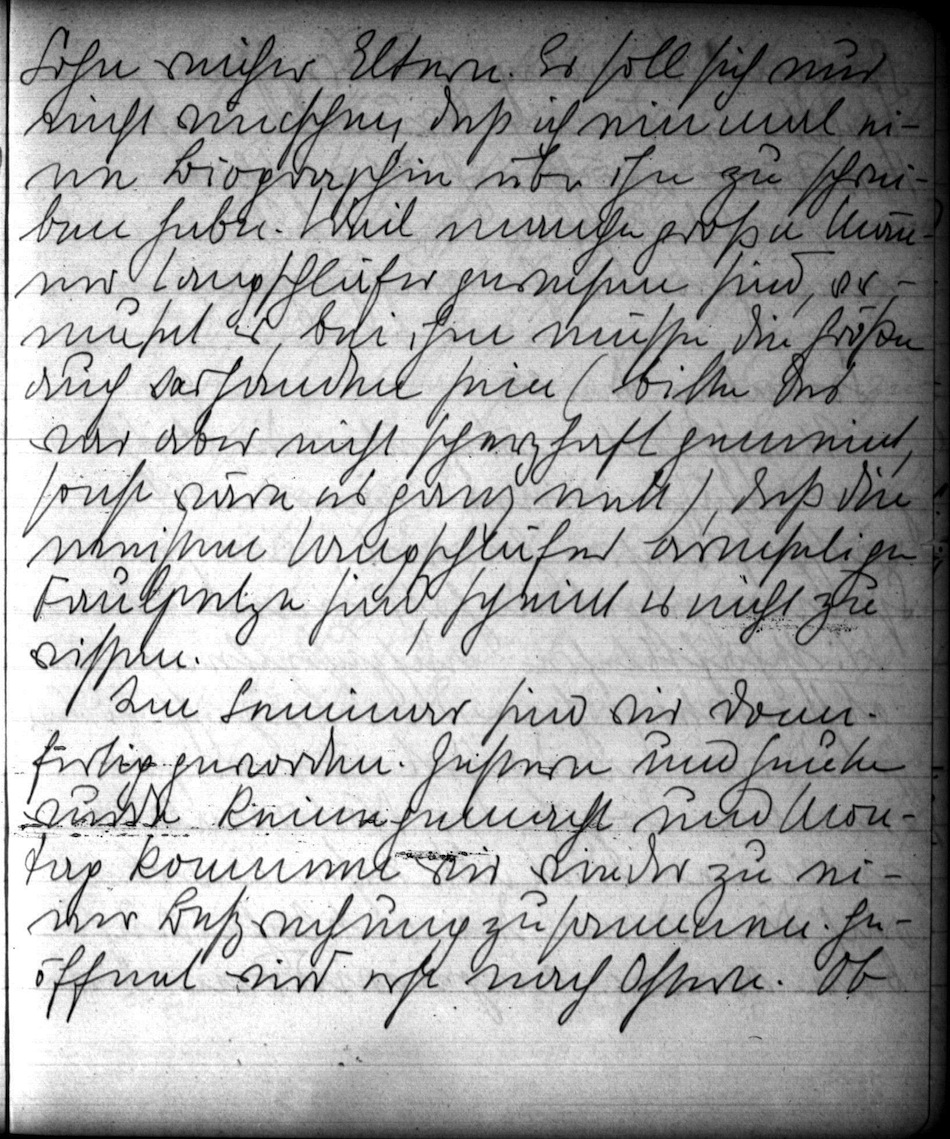 Sohn reicher Eltern. Er soll sich nur
nicht wünschen, daß ich einmal ei-
ne Biographie über ihn zu schrei-
ben habe. Weil manche große Män-
ner Langschläfer gewesen sind, ver-
mutet er, bei ihm müsse die Größe
auch vorhanden sein (bitte das
war aber nicht scherzhaft gemeint,
sonst wäre es ganz nett), daß die
meisten Langschläfer armselige
Faulpelze sind, scheint er nicht zu
wissen.
Im Seminar sind wir dann
fertig geworden. Gestern und heute
wurde reine gemacht und Mon-
tag kommen wir wieder zu ei-
ner Besprechung zusammen. Ge-
öffnet wird erst nach Ostern. Ob